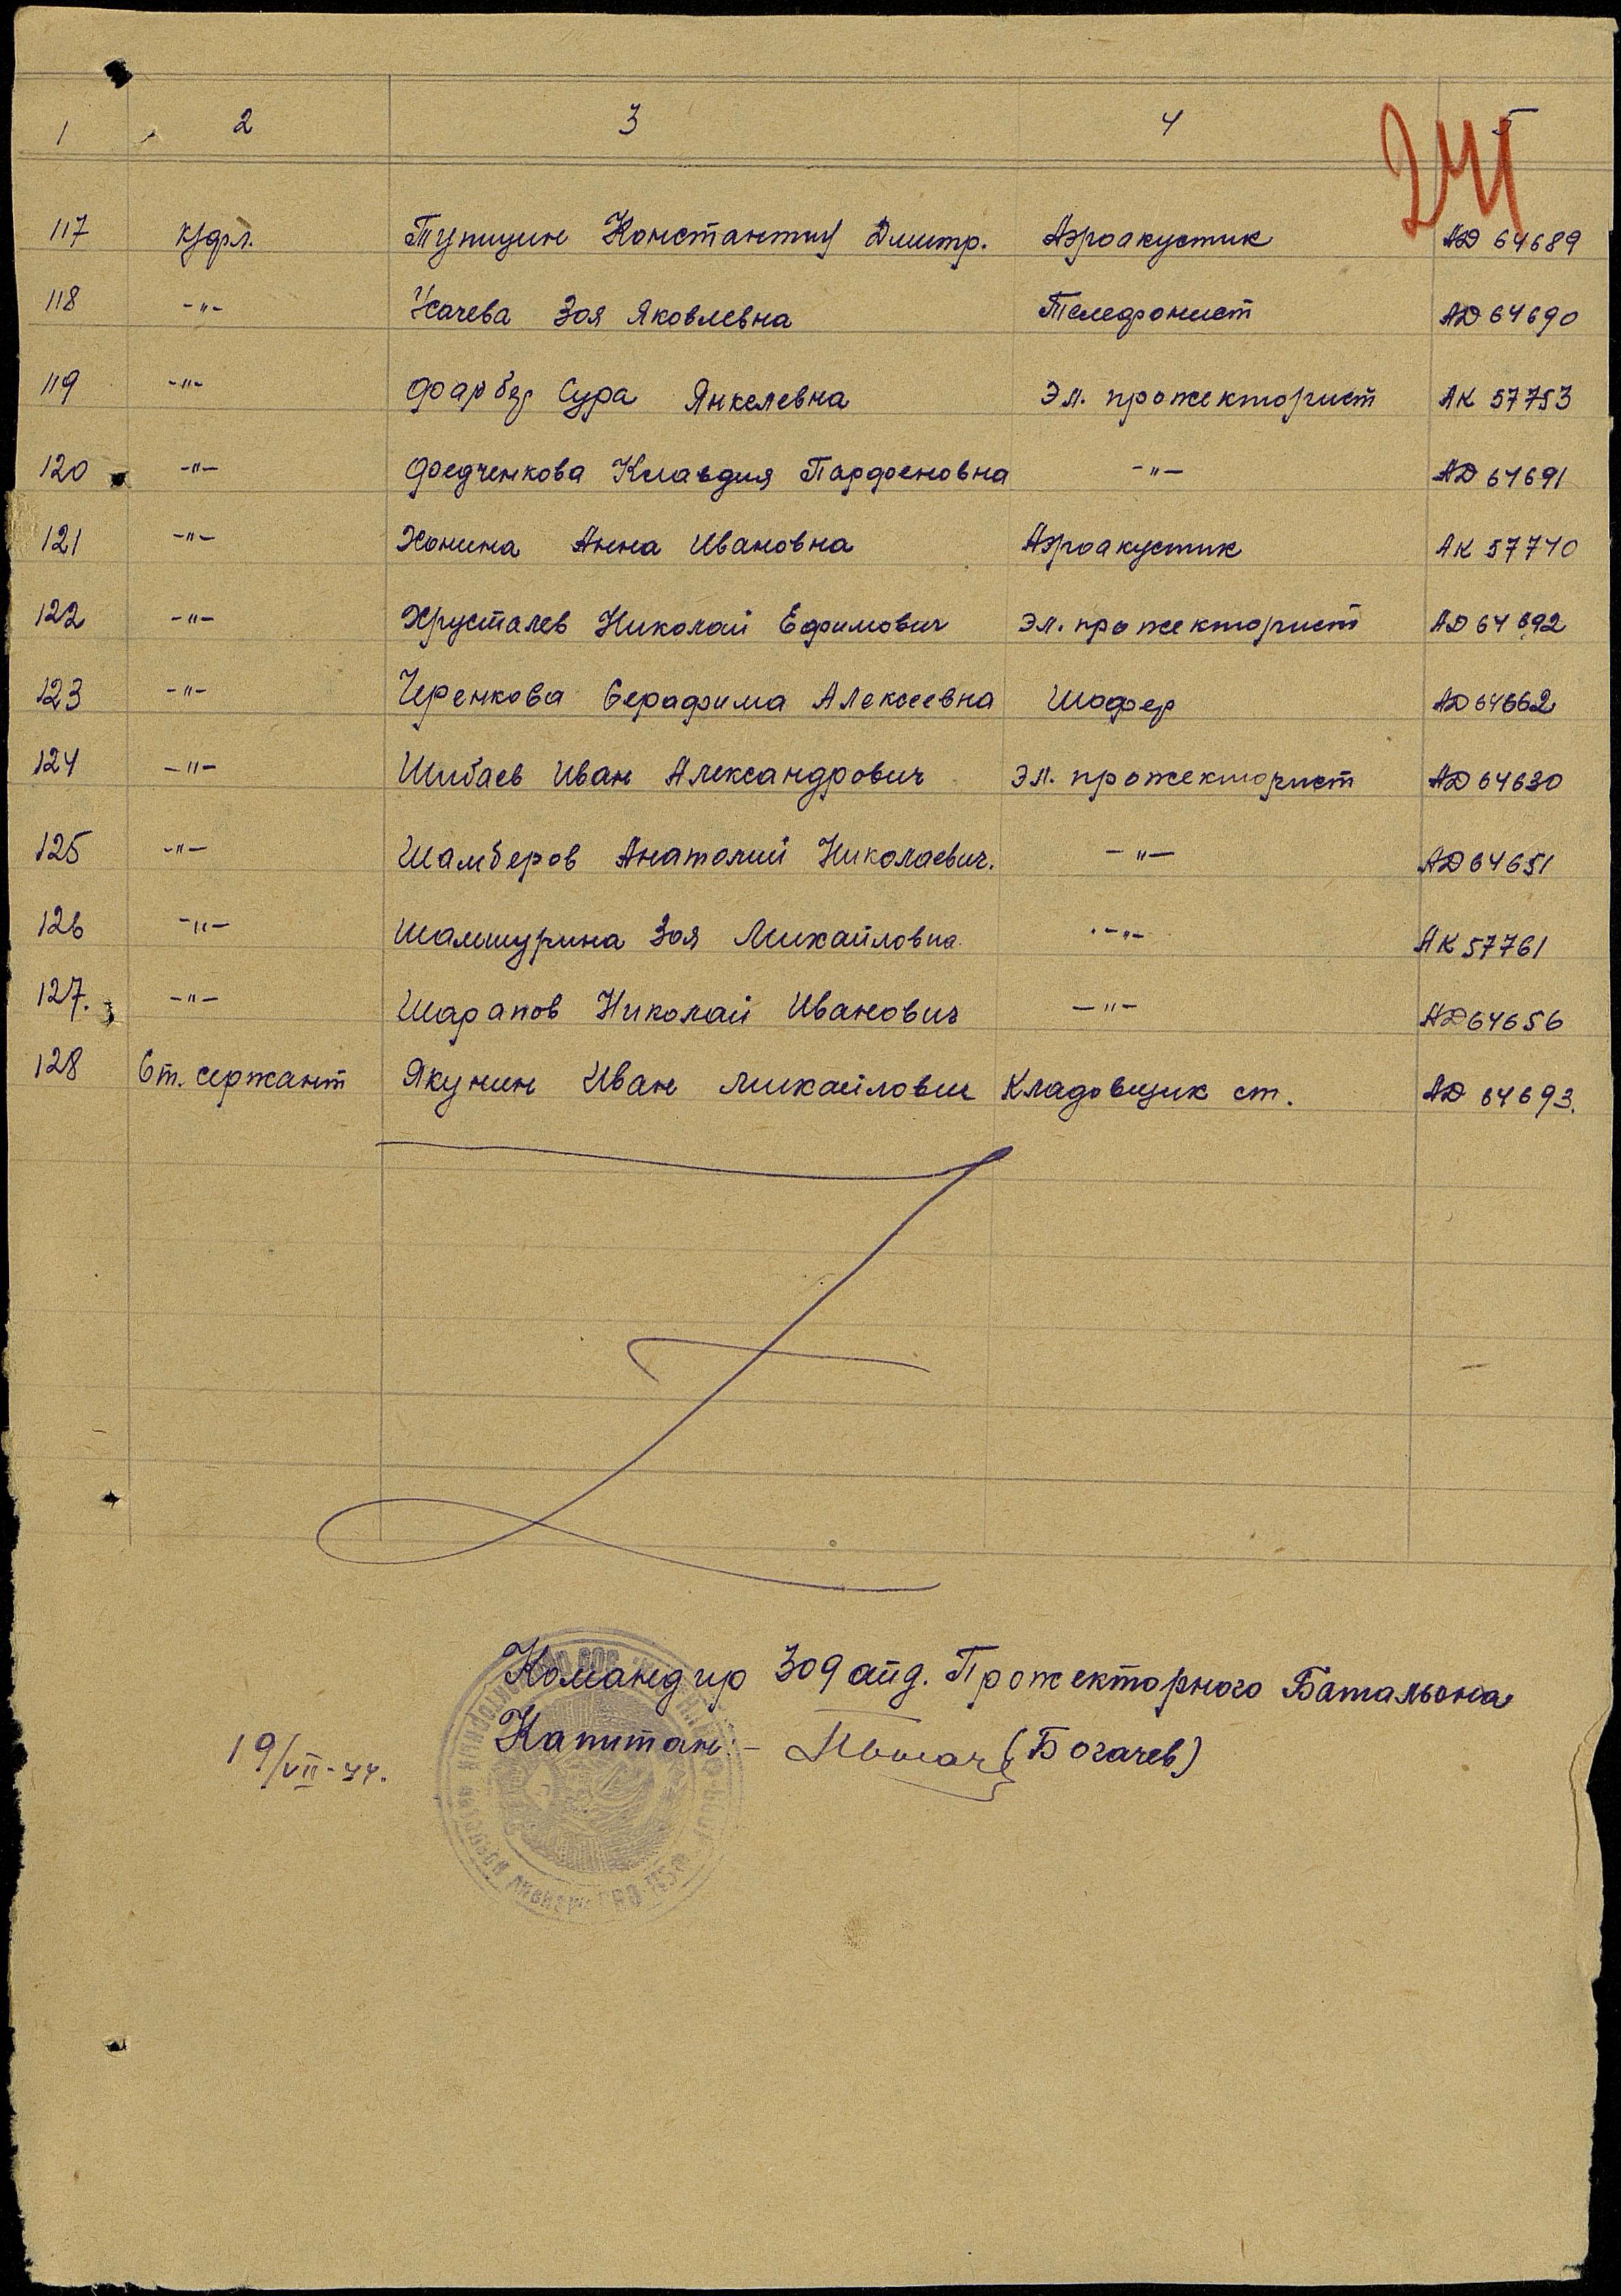 1 2 3 4 5
241
117 кр/фл. Тупицин Константин Дмитр. Аэроакустик АД 64689
118 -"- Усачева Зоя Яковлевна Телефонист АД 64690
119 -"- Фарбер Сура Янкелевна Эл. прожекторист АК 57753
120 -"- Федченкова Клавдия Парфеновна -"- АД 64691
121 -"- Хонина Анна Ивановна Аэроакустик АК 57740
122 -"- Хрусталев Николай Ефимович Эл. прожекторист АД 64692
123 -"- Черенкова Серафима Алексеевна Шофер АД 64662
124 -"- Шибаев Иван Александрович Эл. прожекторист АД 64630
125 -"- Шамберов Анатолий Николаевич. -"- АД 64651
126 -"- Шамшурина Зоя Михайловна -"- АК 57761
127. -"- Шарапов Николай Иванович -"- АД 64656
128 Ст. сержант Якунин Иван Михайлович Кладовщик ст. АД 64693.
Командир 309 отд. Прожекторного Батальона
Капитан: - (Богачев)
19/VII-44.